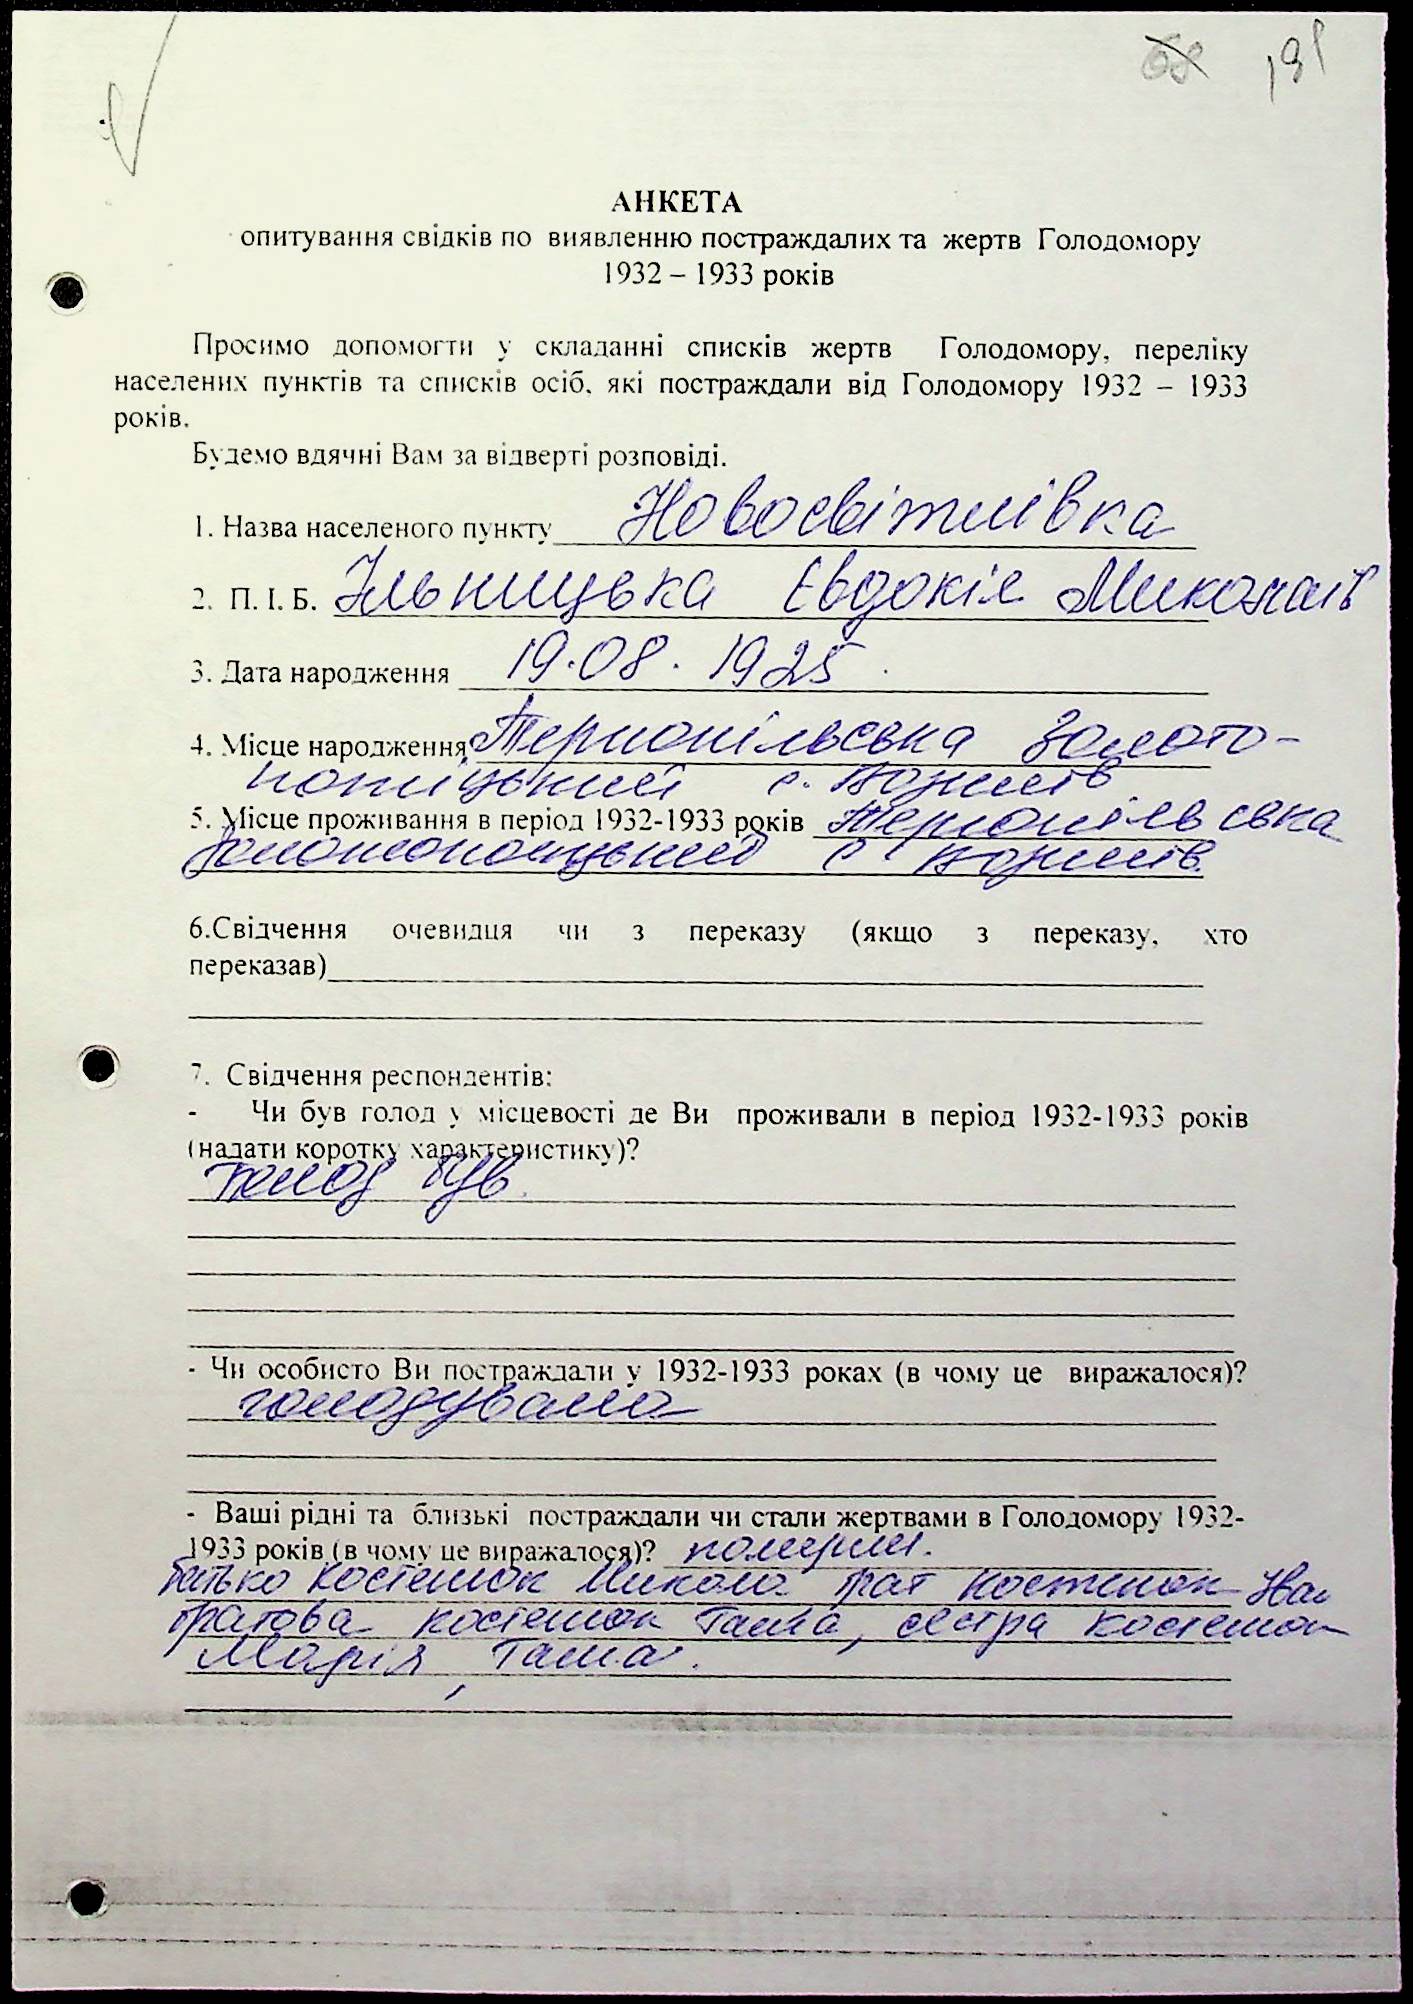 68 191
АНКЕТА
опитування свідків по виявленню постраждалих та жертв Голодомору
1932 – 1933 років
Просимо допомогти у складанні списків жертв Голодомору, переліку
населених пунктів та списків осіб, які постраждали від Голодомору 1932 – 1933
років.
Будемо вдячні Вам за відверті розповіді.
1. Назва населеного пункту Новосвітлівка
2. П. І. Б. Ільницька Євдокія Миколаїв
3. Дата народження 19.08.1925
4. Місце народження Тернопільська Золото-
потіцький с.
5. Місце проживання в період 1932-1933 років Тернопільська
Золотопотіцький с.
6.Свідчення очевидця чи з переказу (якщо з переказу, хто
переказав)
7. Свідчення респондентів:
- Чи був голод у місцевості де Ви проживали в період 1932-1933 років
(надати коротку характеристику)?
Голод був.
- Чи особисто Ви постраждали у 1932-1933 роках (в чому це виражалося)?
голодувала
- Ваші рідні та близькі постраждали чи стали жертвами в Голодомору 1932-
1933 років (в чому це виражалося)? померли.
батько Костешок Микола брат Костешок
братова Костешок Ганна, сестра Костешок
Марія, Ганна.